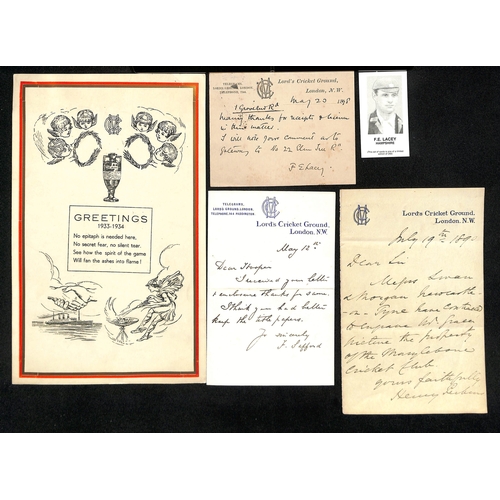 GREETINGS
1933-1934
No epitaph is needed here,
No secret fear, no silent tear.
See how the spirit of the game
Will fan the ashes into flame!
TELEGRAMS,
LORDS GROUND, LONDON.
Lord's Cricket Ground,
London, N.W.
May 23 1898
Many thanks for receipts &
in this matter.
I will note your comment as to
gateway to No 22 Elm Tree Rd.
F E Lacey
F.E. LACEY
HAMPSHIRE
TELEGRAMS,
LORDS GROUND, LONDON.
TELEPHONE, PADDINGTON.
Lord's Cricket Ground,
London, N.W.
May 12th
Dear Hooper
I received your letter
& enclosure thanks for same.
I think you had better
keep the vote papers.
Yrs sincerely
Lord's Cricket Ground,
London, N.W.
July 19th
Dear Sir
Messrs Swan
& Morgan Newcastle
-on-Tyne have contracted
to engrave Dr. Graces
picture the property
of the Marylebone
Cricket Club.
yours faithfully
Henry Perkins